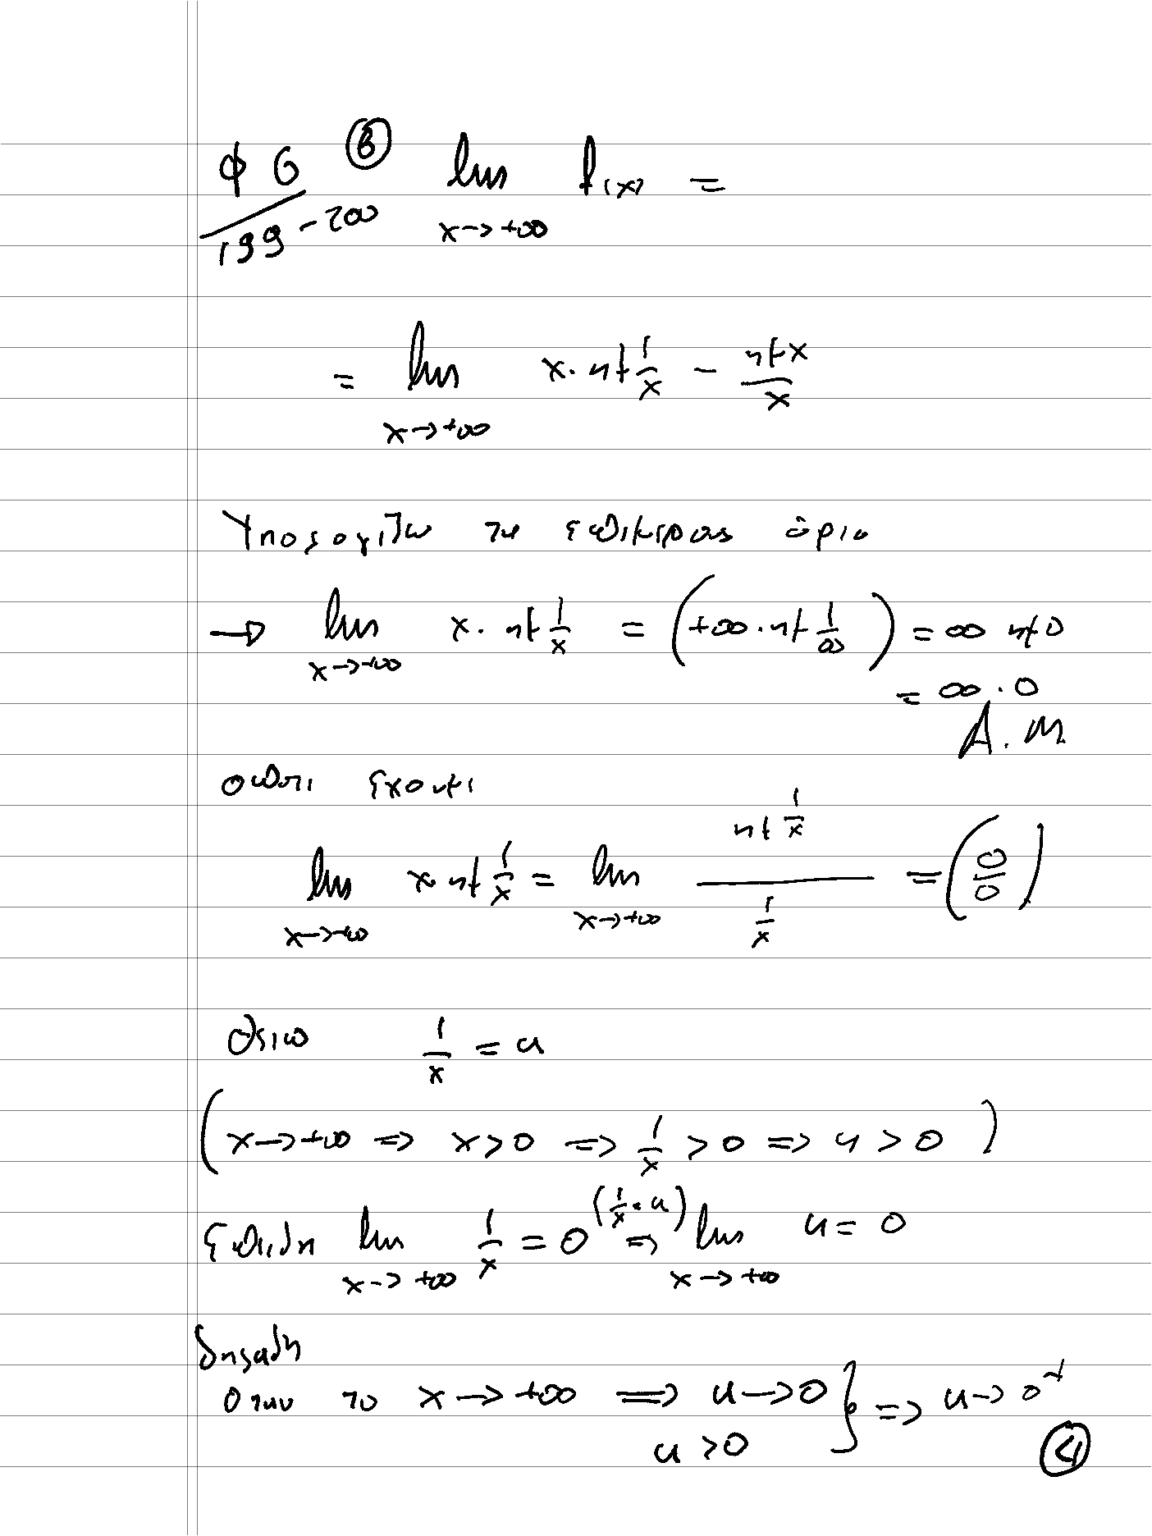 Φ6 / 199-200 (β) lim x→+∞ f(x) =
= lim x→+∞ x·ημ 1/x - ημx/x
Υπολογίζω τα επιμέρους όρια
→ lim x→+∞ x·ημ 1/x = (+∞·ημ 1/∞) = ∞ ημ0
= ∞·0
Α.Μ
οπότε έχουμε
lim x→+∞ x ημ 1/x = lim x→+∞ (ημ 1/x)/(1/x) = (0/0)
Θέτω 1/x = u
(x→+∞ ⇒ x>0 ⇒ 1/x >0 ⇒ u>0)
Επειδή lim x→+∞ 1/x = 0 (1/x=u) ⇒ lim x→+∞ u = 0
δηλαδή
όταν το x→+∞ ⇒ u→0 } ⇒ u→0⁺
u>0
(4)